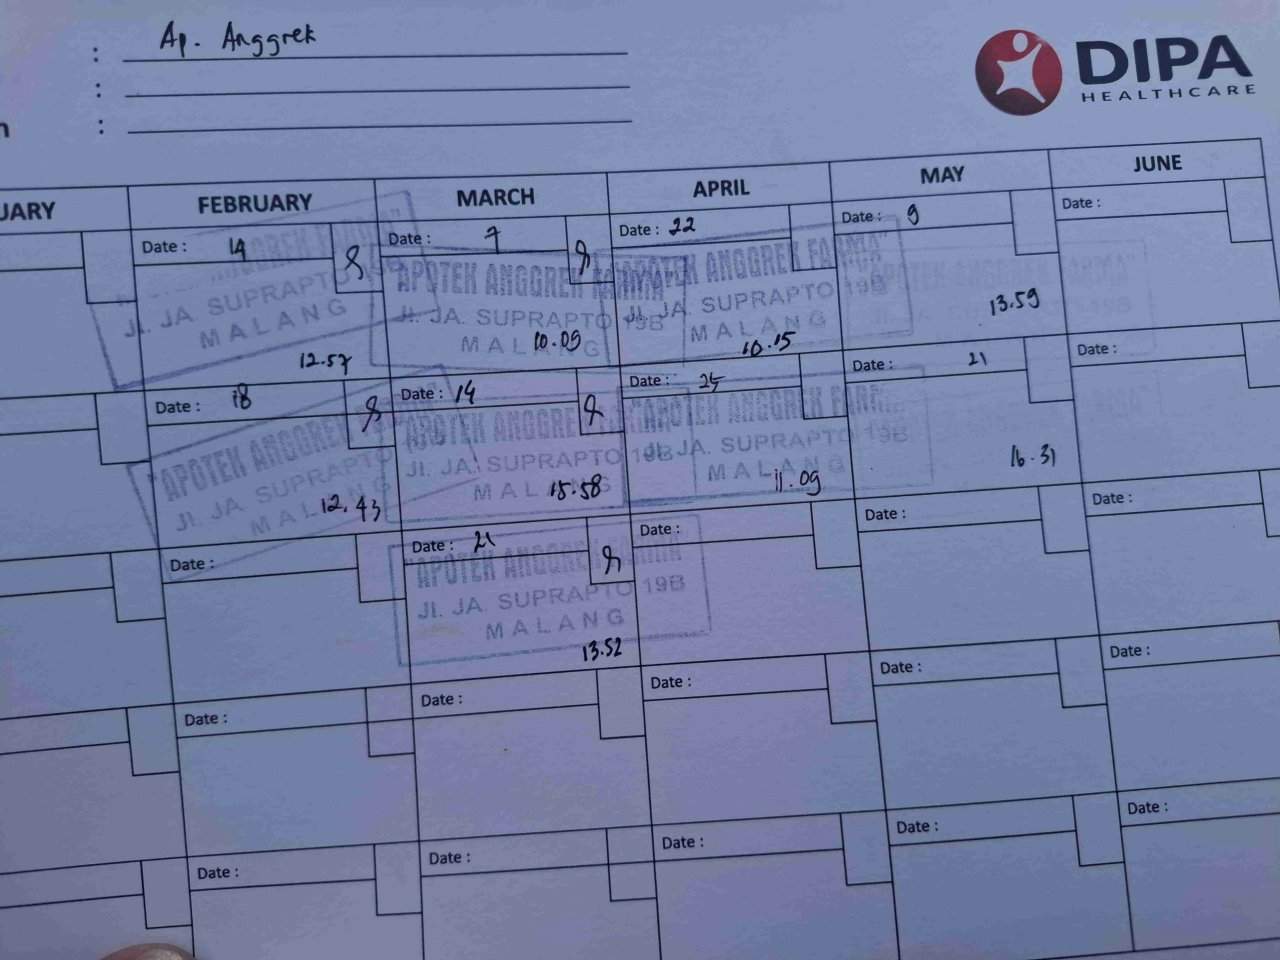 : Ap. Anggrek
:
:
DIPA
HEALTHCARE
FEBRUARY MARCH APRIL MAY JUNE
Date : 14
"ANGGREK FARMA"
Jl. JA. SUPRAPTO
MALANG
12.57
Date : 7
"APOTEK ANGGREK FARMA"
Jl. JA. SUPRAPTO 19B
MALANG
10.09
Date : 22
"APOTEK ANGGREK FARMA"
Jl. JA. SUPRAPTO 19B
MALANG
10.15
Date : 9
13.59
Date :
Date : 18
"APOTEK ANGGREK FARMA"
Jl. JA. SUPRAPTO
MALANG
12.43
Date : 14
"APOTEK ANGGREK FARMA"
Jl. JA. SUPRAPTO 19B
MALANG
15.58
Date : 25
"APOTEK ANGGREK FARMA"
Jl. JA. SUPRAPTO 19B
MALANG
11.09
Date : 21
16.31
Date :
Date :
Date : 21
"APOTEK ANGGREK FARMA"
Jl. JA. SUPRAPTO 19B
MALANG
13.52
Date :
Date :
Date :
Date :
Date :
Date :
Date :
Date :
Date :
Date :
Date :
Date :
Date :